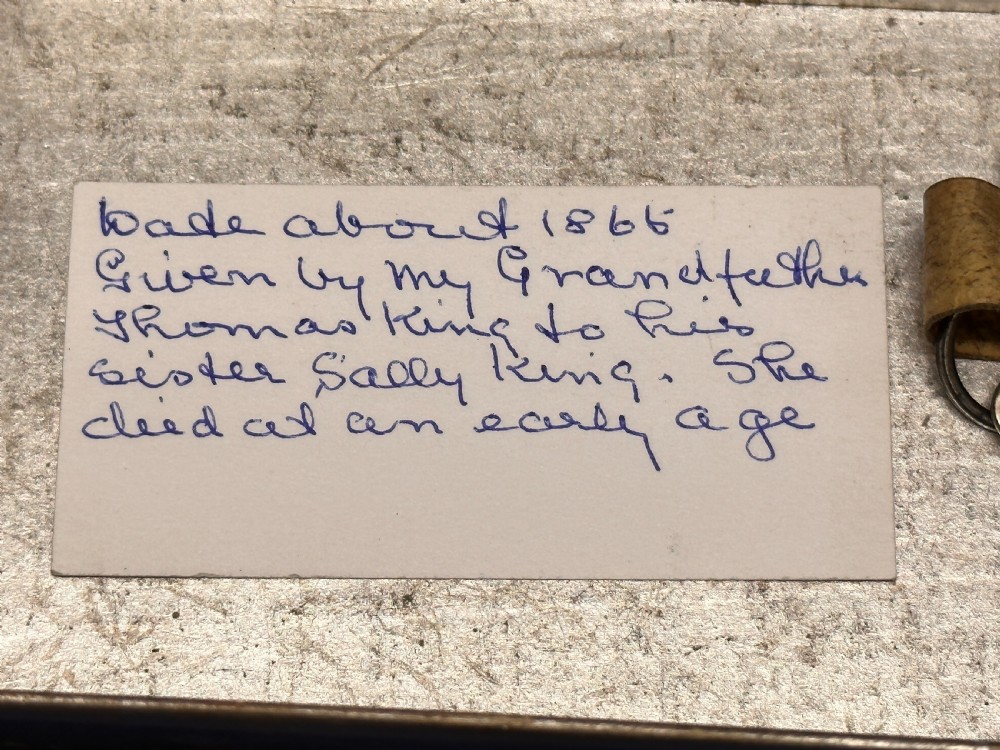 Date about 1865
Given by my Grandfather
Thomas King to his
sister Sally King. She
died at an early age